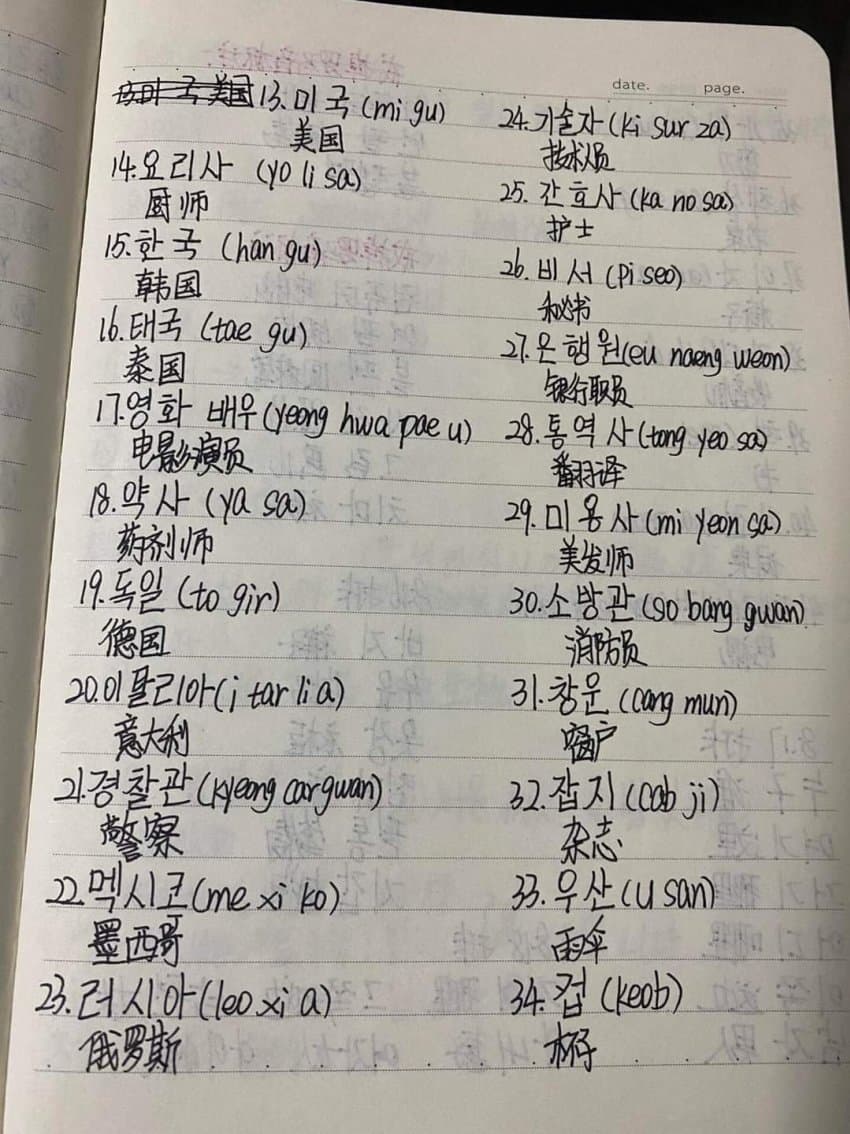 date. page.
13. 미국 (mi gu)
美国
14. 요리사 (yo li sa)
厨师
15. 한국 (han gu)
韩国
16. 태국 (tae gu)
泰国
17. 영화 배우 (yeong hwa pae u)
电影演员
18. 약사 (ya sa)
药剂师
19. 독일 (to gir)
德国
20. 이탈리아 (i tar li a)
意大利
21. 경찰관 (kyeong cargwan)
警察
22. 멕시코 (me xi ko)
墨西哥
23. 러시아 (leo xi a)
俄罗斯
24. 기술자 (ki sur za)
技术人员
25. 간호사 (ka no sa)
护士
26. 비서 (pi seo)
秘书
27. 은행원 (eu naeng weon)
银行职员
28. 통역사 (tong yeo sa)
翻译
29. 미용사 (mi yeon sa)
美发师
30. 소방관 (so bang gwan)
消防员
31. 창문 (cang mun)
窗户
32. 잡지 (cab ji)
杂志
33. 우산 (u san)
雨伞
34. 컵 (keob)
杯子